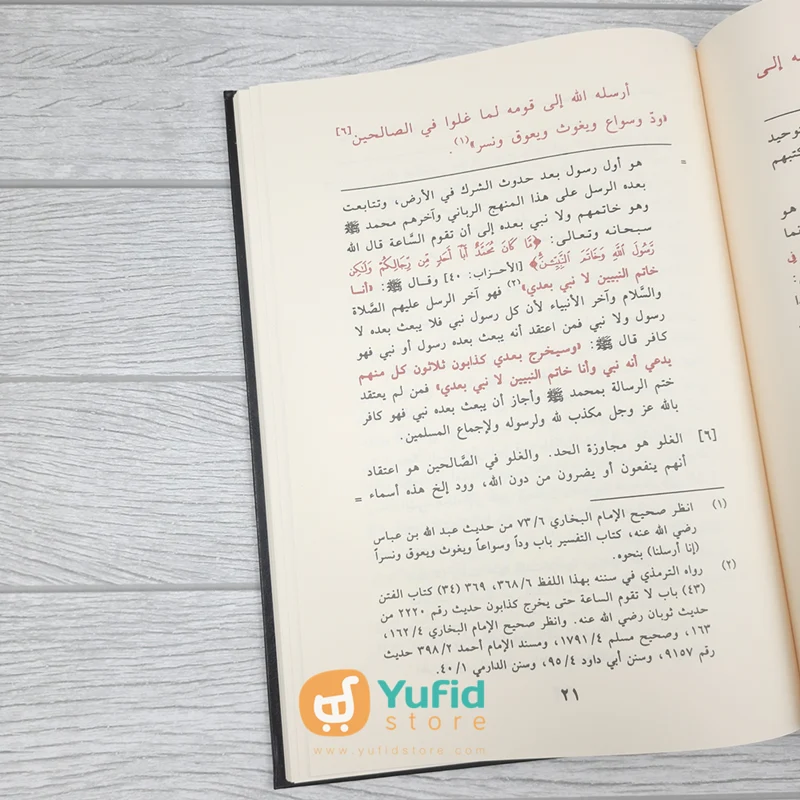 أرسله الله إلى قومه لما غلوا في الصالحين[٦]
«ودّ وسواع ويغوث ويعوق ونسر»(١).
= هو أول رسول بعد حدوث الشرك في الأرض، وتتابعت
بعده الرسل على هذا المنهج الرباني وآخرهم محمد ﷺ
وهو خاتمهم ولا نبي بعده إلى أن تقوم السَّاعة قال الله
سبحانه وتعالى: ﴿مَّا كَانَ مُحَمَّدٌ أَبَآ أَحَدٍ مِّن رِّجَالِكُمْ وَلَٰكِن
رَّسُولَ اللَّهِ وَخَاتَمَ النَّبِيِّـۧنَ﴾ [الأحزاب: ٤٠] وقـال ﷺ: «أنـا
خاتم النبيين لا نبي بعدي»(٢) فهو آخر الرسل عليهم الصَّلاة
والسَّلام وآخر الأنبياء لأن كل رسول نبي فلا يبعث بعده لا
رسول ولا نبي فمن اعتقد أنه يبعث بعده رسول أو نبي فهو
كافر قال ﷺ: «وسيخرج بعدي كذابون ثلاثون كل منهم
يدعي أنه نبي وأنا خاتم النبيين لا نبي بعدي» فمن لم يعتقد
ختم الرسالة بمحمد ﷺ وأجاز أن يبعث بعده نبي فهو كافر
بالله عز وجل مكذب لله ولرسوله ولإجماع المسلمين.
[٦] الغلو هو مجاوزة الحد. والغلو في الصَّالحين هو اعتقاد
أنهم ينفعون أو يضرون من دون الله، وود إلخ هذه أسماء =
(١) انظر صحيح الإمام البخاري ٧٣/٦ من حديث عبد الله بن عباس
رضي الله عنه، كتاب التفسير باب وداً وسواعاً ويغوث ويعوق ونسراً
(إنا أرسلنا) بنحوه.
(٢) رواه الترمذي في سننه بهذا اللفظ ٣٦٨/٦، ٣٦٩ (٣٤) كتاب الفتن
(٤٣) باب لا تقوم الساعة حتى يخرج كذابون حديث رقم ٢٢٢٠ من
حديث ثوبان رضي الله عنه. وانظر صحيح الإمام البخاري ١٦٢/٤،
١٦٣، وصحيح مسلم ١٧٩١/٤، ومسند الإمام أحمد ٣٩٨/٢ حديث
رقم ٩١٥٧، وسنن أبي داود ٩٥/٤، وسنن الدارمي ٤٠/١.
٢١
Yufid
store
www.yufidstore.com